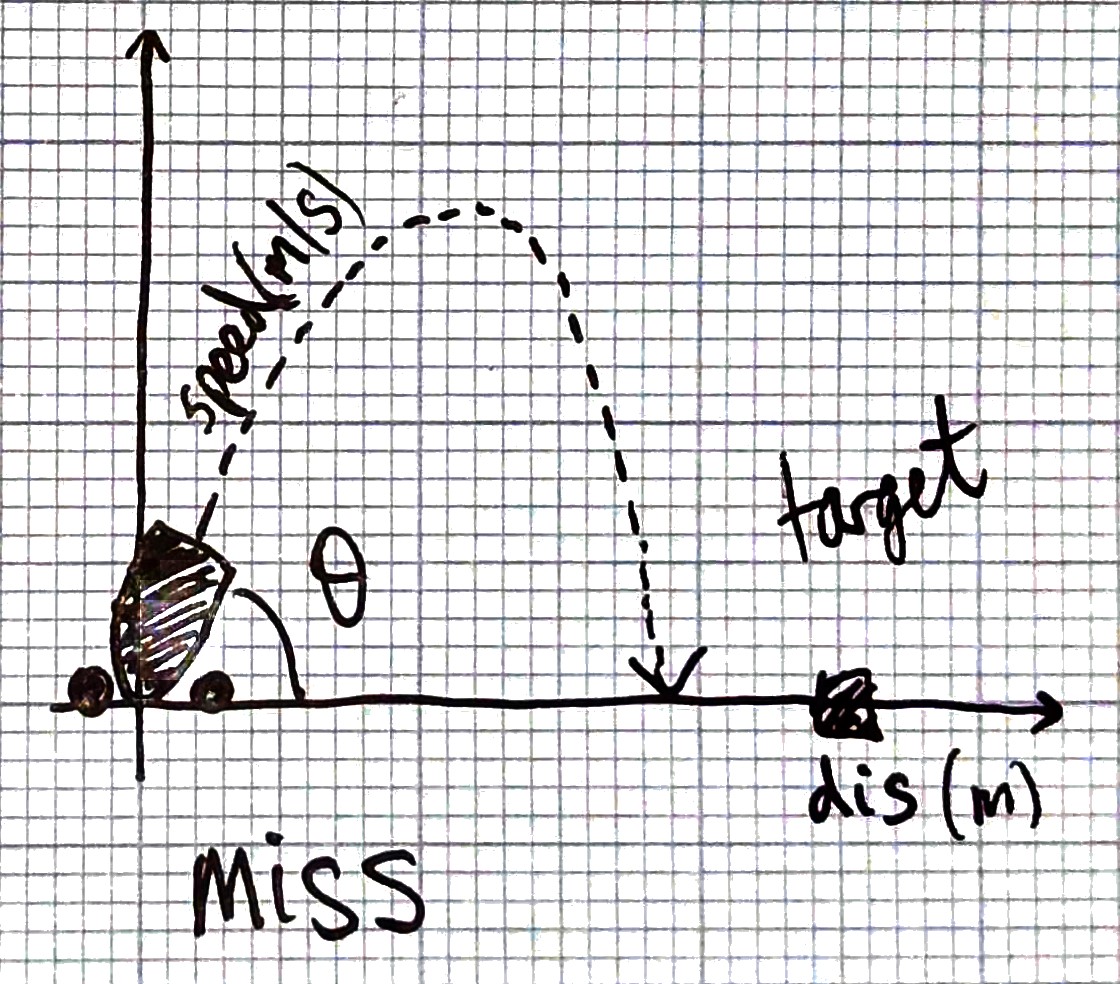 speed(m/s)
θ
target
dis (m)
Miss